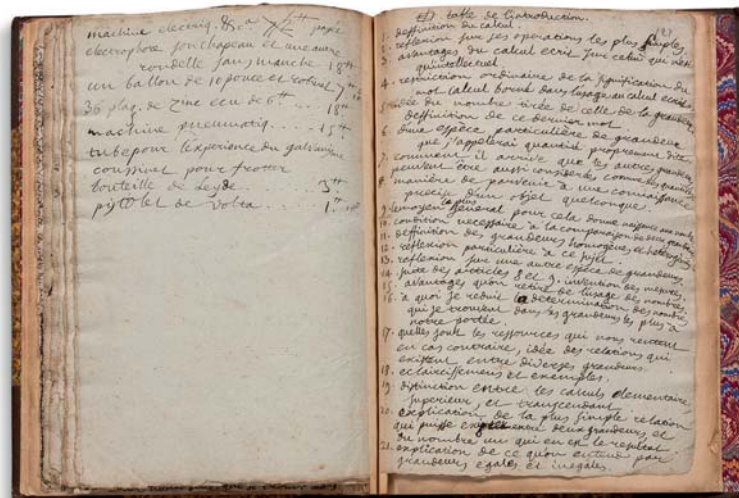 machine electriq. &c a 7/2 ₶ payée
electrophore son chapeau et une autre
rondelle sans manche 18 ₶
un ballon de 10 pouce et robinet 7 ₶
36 plaq. de zinc ecu de 6 ₶ . . . 18 ₶
machine pneumatiq. . . . . 15 ₶
tube pour l'experience du galvanisme
coussinet pour frotter
bouteille de leyde . . . . 3 ₶
pistolet de volta . . . . 1 ₶
table de l'introduction.
1. deffinition du calcul.
2. reflexion sur ses operations les plus simples.
3. avantages du calcul ecrit sur celui qui n'est
qu'intellectuel.
4. restriction ordinaire de la signification du
mot calcul borné dans l'usage au calcul ecrit.
5. idée du nombre tirée de celle de la grandeur
deffinition de ce dernier mot.
6. d'une espèce particulière de grandeur
que j'appelerai quantité proprement dite.
7. comment il arrive que les autres grandeurs
peuvent être aussi considerées comme des quantités
8. manière de parvenir à une connaissance
précise d'un objet quelconque.
9. le moyen le plus général pour cela donne naissance aux nombres
10. condition necessaire à la comparaison de deux grandeurs
11. deffinition des grandeurs homogènes et heterogènes
12. reflexion particulière à ce sujet.
13. reflexion sur une autre espèce de grandeurs.
14. suite des articles 8 et 9. invention des mesures.
15. avantages qu'on retire de l'usage des nombres.
16. à quoi je reduit la determination des nombres
qui se trouvent dans les grandeurs les plus à
notre portée.
17. quelles sont les ressources qui nous restent
en cas contraire, idée des relations qui
existent entre diverses grandeurs.
18. eclaircissemens et exemples.
19. distinction entre les calculs elementaire,
superieur, et transcendant.
20. explication de la plus simple relation
qui puisse exister entre deux grandeurs et
du nombre un qui en est le resultat
21. explication de ce qu'on entend par
grandeurs egales et inegales.